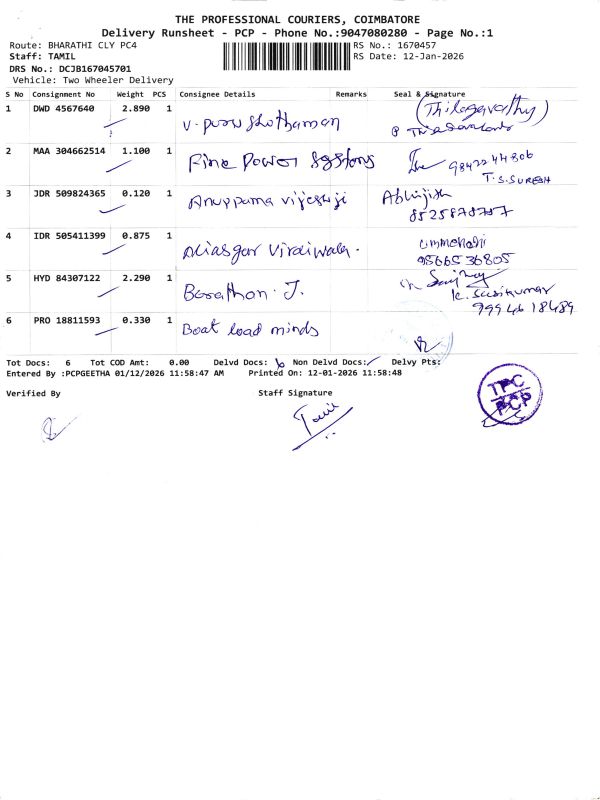 THE PROFESSIONAL COURIERS, COIMBATORE
Delivery Runsheet - PCP - Phone No.:9047080280 - Page No.:1
Route: BHARATHI CLY PC4 RS No.: 1670457
Staff: TAMIL RS Date: 12-Jan-2026
DRS No.: DCJB167045701
Vehicle: Two Wheeler Delivery
S No Consignment No Weight PCS Consignee Details Remarks Seal & Signature
1 DWD 4567640 2.890 1 V. (Thilagavathy)
2 MAA 304662514 1.100 1 Fine Power Systems 98422 44806
T.S.SURESH
3 JDR 509824365 0.120 1 Anuppama vijeshji Abhijith
4 IDR 505411399 0.875 1 Aliasgar Virdiwala.
95665 36805
5 HYD 84307122 2.290 1 Barathan. J. K. Sasikumar
99946 18489
6 PRO 18811593 0.330 1 Boat load minds
Tot Docs: 6 Tot COD Amt: 0.00 Delvd Docs: 6 Non Delvd Docs: Delvy Pts:
Entered By :PCPGEETHA 01/12/2026 11:58:47 AM Printed On: 12-01-2026 11:58:48
Verified By Staff Signature
Tamil
TPC
PCP